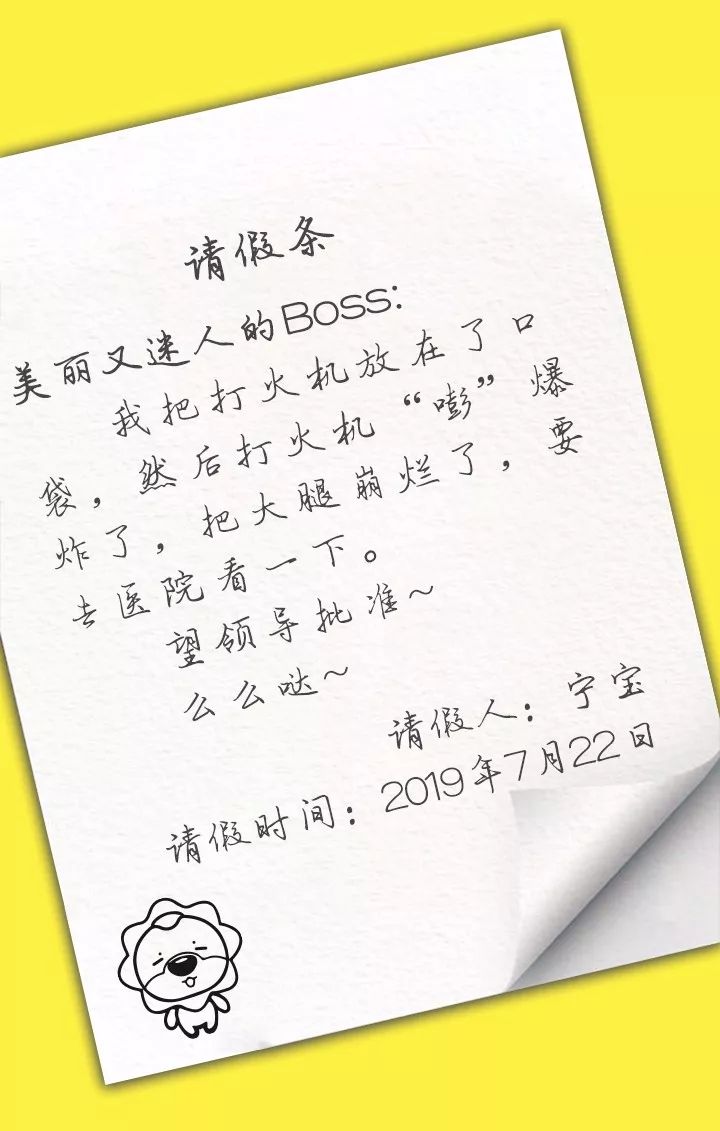 请假条
美丽又迷人的Boss：
我把打火机放在了口
袋，然后打火机“嘭”爆
炸了，把大腿崩烂了，要
去医院看一下。
望领导批准~
么么哒~
请假人：宁宝
请假时间：2019年7月22日